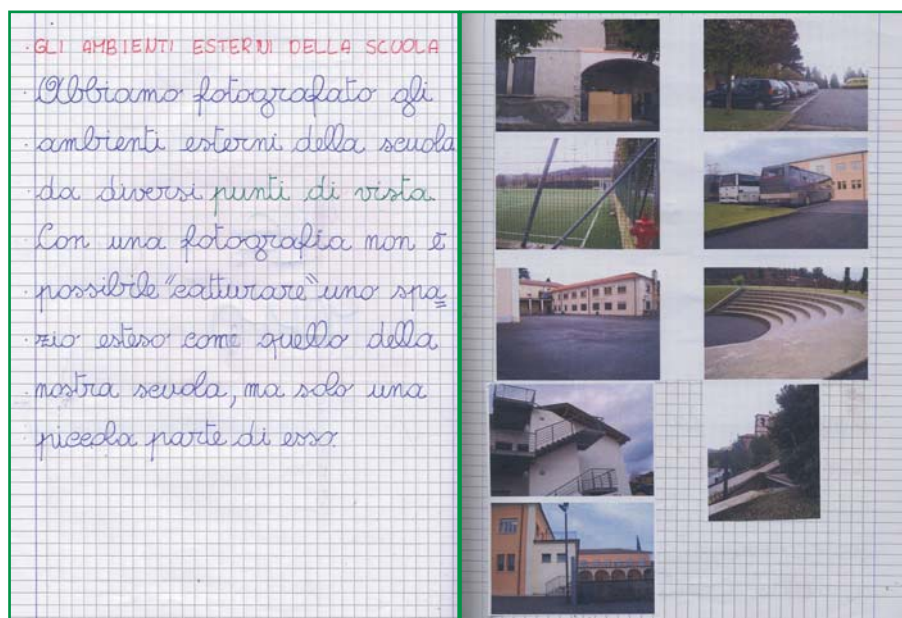 GLI AMBIENTI ESTERNI DELLA SCUOLA
Abbiamo fotografato gli
ambienti esterni della scuola
da diversi punti di vista.
Con una fotografia non è
possibile "catturare" uno spa=
zio esteso come quello della
nostra scuola, ma solo una
piccola parte di esso.